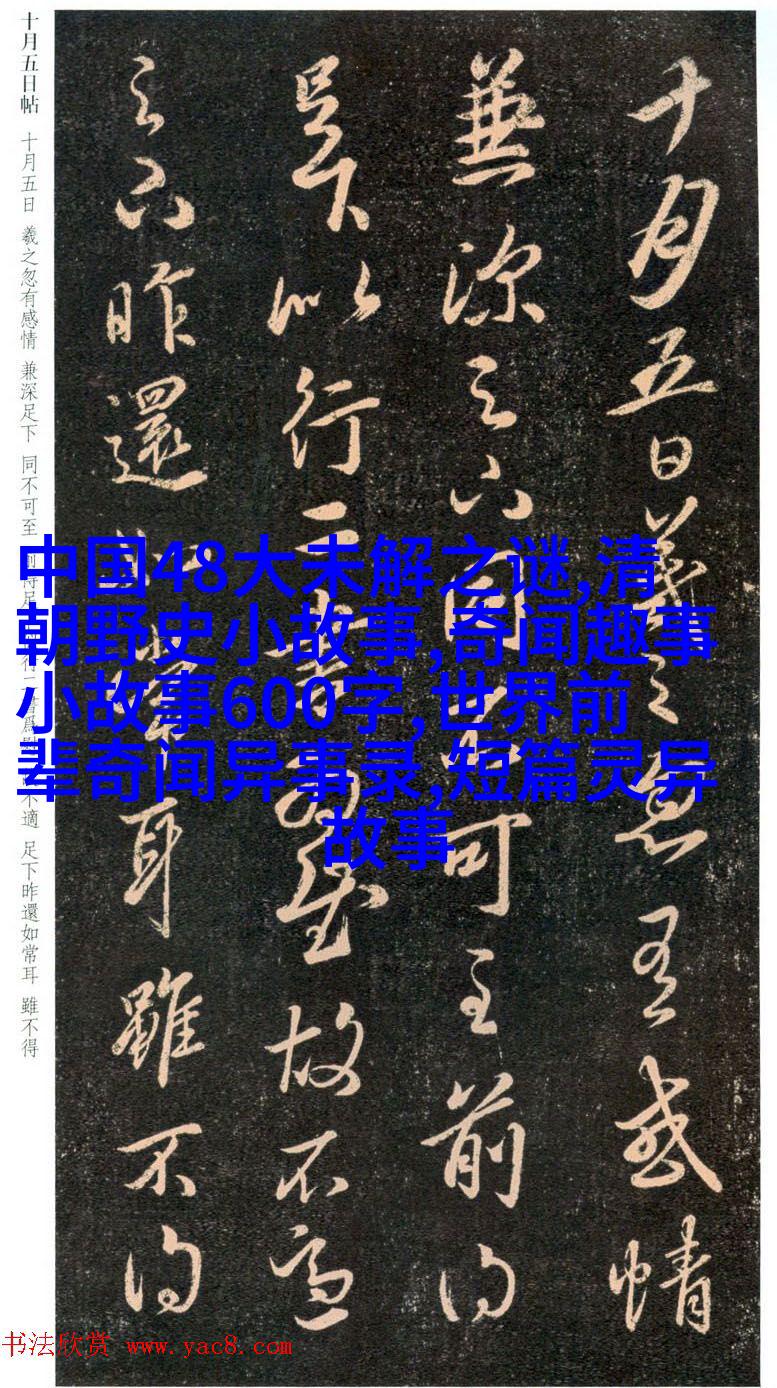 十月五日羲之忽有感情
兼深足下同不可至前得
足下以行二書爲慰故不適
足下昨還如常耳雖不得
十月五日帖 十月五日 羲之忽有感情 兼深足下 同不可至 前得足 行二書爲 不適 足下昨還如常耳 雖不得
中国48大未解之谜,清
朝野史小故事,奇闻趣事
小故事600字,世界前
辈奇闻异事录,短篇灵异
故事
书法欣赏 www.yac8.com